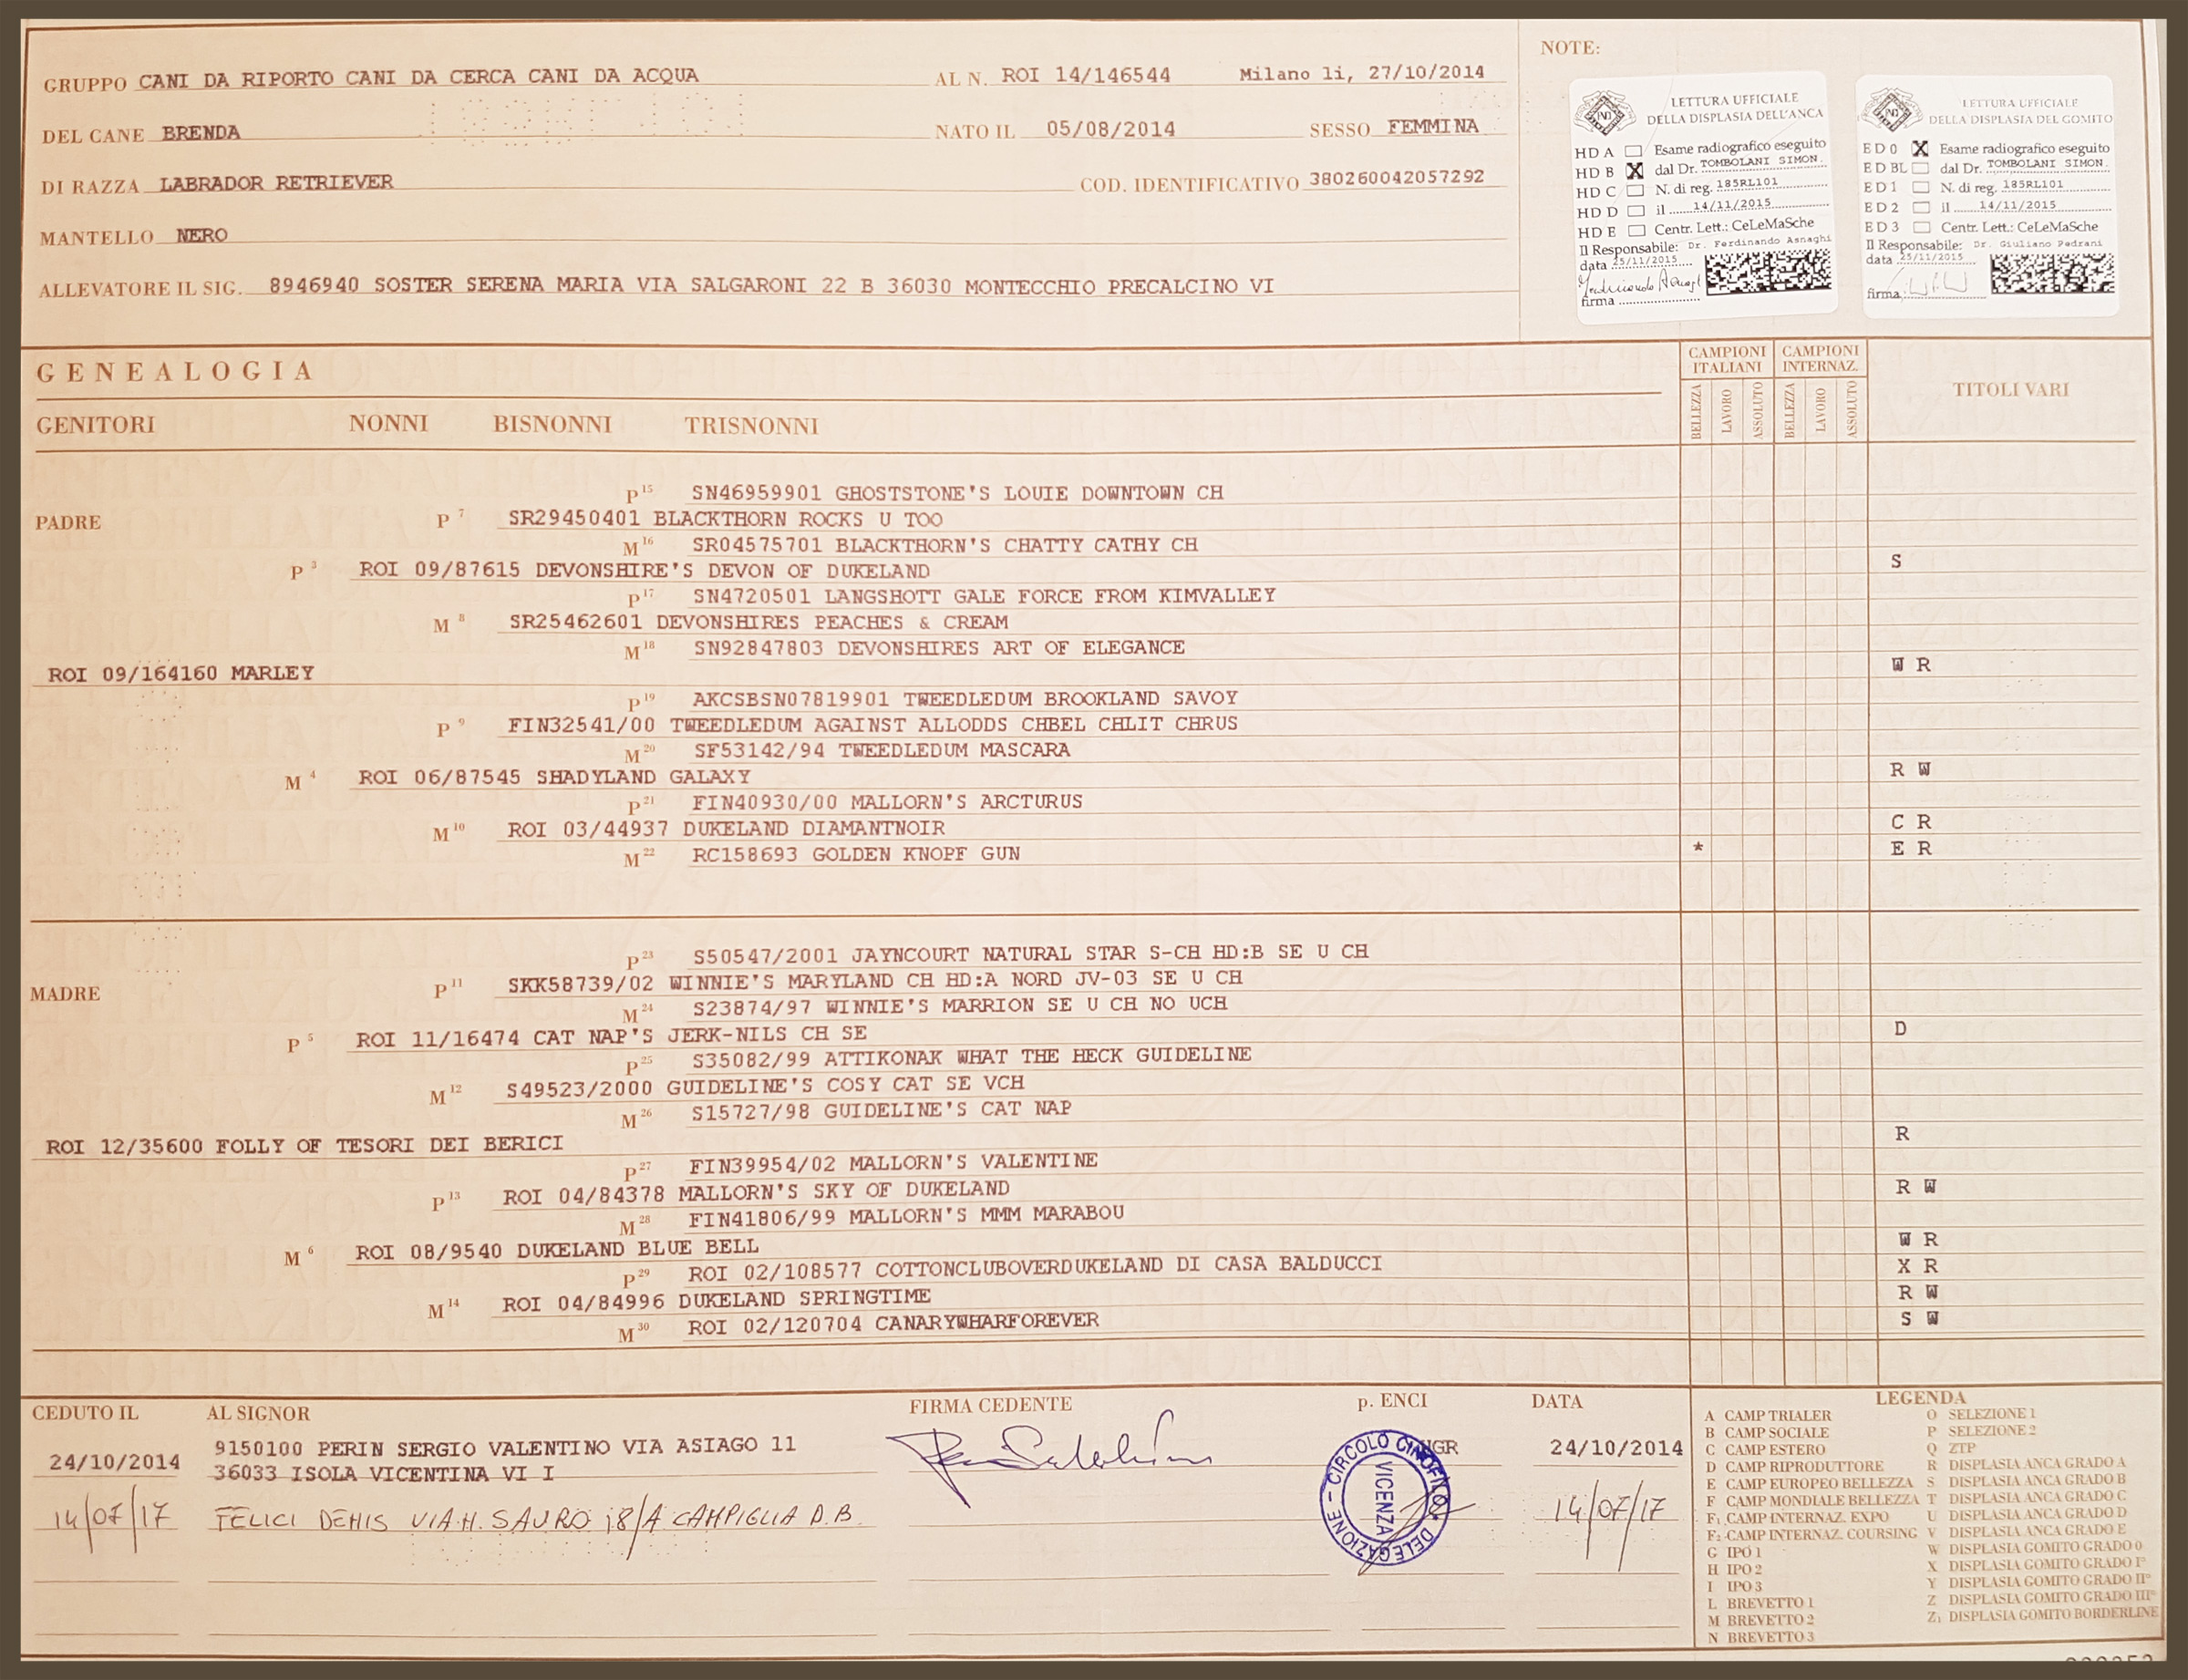 GRUPPO CANI DA RIPORTO CANI DA CERCA CANI DA ACQUA AL N. ROI 14/146544 Milano li, 27/10/2014
DEL CANE BRENDA NATO IL 05/08/2014 SESSO FEMMINA
DI RAZZA LABRADOR RETRIEVER COD. IDENTIFICATIVO 380260042057292
MANTELLO NERO
ALLEVATORE IL SIG. 8946940 SOSTER SERENA MARIA VIA SALGARONI 22 B 36030 MONTECCHIO PRECALCINO VI
NOTE:
LETTURA UFFICIALE
DELLA DISPLASIA DELL'ANCA
HD A Esame radiografico eseguito
HD B X dal Dr. TOMBOLANI SIMON.
HD C N. di reg. 185RL101
HD D il 14/11/2015
HD E Centr. Lett.: CeLeMaSche
Il Responsabile: Dr. Ferdinando Asnaghi
data 25/11/2015
firma
LETTURA UFFICIALE
DELLA DISPLASIA DEL GOMITO
ED 0 X Esame radiografico eseguito
ED BL dal Dr. TOMBOLANI SIMON.
ED 1 N. di reg. 185RL101
ED 2 il 14/11/2015
ED 3 Centr. Lett.: CeLeMaSche
Il Responsabile: Dr. Giuliano Pedrani
data 25/11/2015
firma
GENEALOGIA
GENITORI NONNI BISNONNI TRISNONNI
CAMPIONI ITALIANI
CAMPIONI INTERNAZ.
BELLEZZA LAVORO ASSOLUTO BELLEZZA LAVORO ASSOLUTO
TITOLI VARI
P 15 SN46959901 GHOSTSTONE'S LOUIE DOWNTOWN CH
PADRE P 7 SR29450401 BLACKTHORN ROCKS U TOO
M 16 SR04575701 BLACKTHORN'S CHATTY CATHY CH
P 3 ROI 09/87615 DEVONSHIRE'S DEVON OF DUKELAND S
P 17 SN4720501 LANGSHOTT GALE FORCE FROM KIMVALLEY
M 8 SR25462601 DEVONSHIRES PEACHES & CREAM
M 18 SN92847803 DEVONSHIRES ART OF ELEGANCE
ROI 09/164160 MARLEY W R
P 19 AKCSBSN07819901 TWEEDLEDUM BROOKLAND SAVOY
P 9 FIN32541/00 TWEEDLEDUM AGAINST ALLODDS CHBEL CHLIT CHRUS
M 20 SF53142/94 TWEEDLEDUM MASCARA
M 4 ROI 06/87545 SHADYLAND GALAXY R W
P 21 FIN40930/00 MALLORN'S ARCTURUS
M 10 ROI 03/44937 DUKELAND DIAMANTNOIR C R
M 22 RC158693 GOLDEN KNOPF GUN * E R
P 23 S50547/2001 JAYNCOURT NATURAL STAR S-CH HD:B SE U CH
MADRE P 11 SKK58739/02 WINNIE'S MARYLAND CH HD:A NORD JV-03 SE U CH
M 24 S23874/97 WINNIE'S MARRION SE U CH NO UCH
P 5 ROI 11/16474 CAT NAP'S JERK-NILS CH SE D
P 25 S35082/99 ATTIKONAK WHAT THE HECK GUIDELINE
M 12 S49523/2000 GUIDELINE'S COSY CAT SE VCH
M 26 S15727/98 GUIDELINE'S CAT NAP
ROI 12/35600 FOLLY OF TESORI DEI BERICI R
P 27 FIN39954/02 MALLORN'S VALENTINE
P 13 ROI 04/84378 MALLORN'S SKY OF DUKELAND R W
M 28 FIN41806/99 MALLORN'S MMM MARABOU
M 6 ROI 08/9540 DUKELAND BLUE BELL W R
P 29 ROI 02/108577 COTTONCLUBOVERDUKELAND DI CASA BALDUCCI X R
M 14 ROI 04/84996 DUKELAND SPRINGTIME R W
M 30 ROI 02/120704 CANARYWHARFOREVER S W
CEDUTO IL AL SIGNOR FIRMA CEDENTE p. ENCI DATA
24/10/2014 9150100 PERIN SERGIO VALENTINO VIA ASIAGO 11 GR 24/10/2014
36033 ISOLA VICENTINA VI I
14/07/17 FELICI DENIS VIA N. SAURO 18/A CAMPIGLIA D.B. 14/07/17
CIRCOLO CINOFILO
VICENZA
DELEGAZIONE
LEGENDA
A CAMP TRIALER
B CAMP SOCIALE
C CAMP ESTERO
D CAMP RIPRODUTTORE
E CAMP EUROPEO BELLEZZA
F CAMP MONDIALE BELLEZZA
F1 CAMP INTERNAZ. EXPO
F2 CAMP INTERNAZ. COURSING
G IPO 1
H IPO 2
I IPO 3
L BREVETTO 1
M BREVETTO 2
N BREVETTO 3
O SELEZIONE 1
P SELEZIONE 2
Q ZTP
R DISPLASIA ANCA GRADO A
S DISPLASIA ANCA GRADO B
T DISPLASIA ANCA GRADO C
U DISPLASIA ANCA GRADO D
V DISPLASIA ANCA GRADO E
W DISPLASIA GOMITO GRADO 0
X DISPLASIA GOMITO GRADO I°
Y DISPLASIA GOMITO GRADO II°
Z DISPLASIA GOMITO GRADO III°
Z1 DISPLASIA GOMITO BORDERLINE